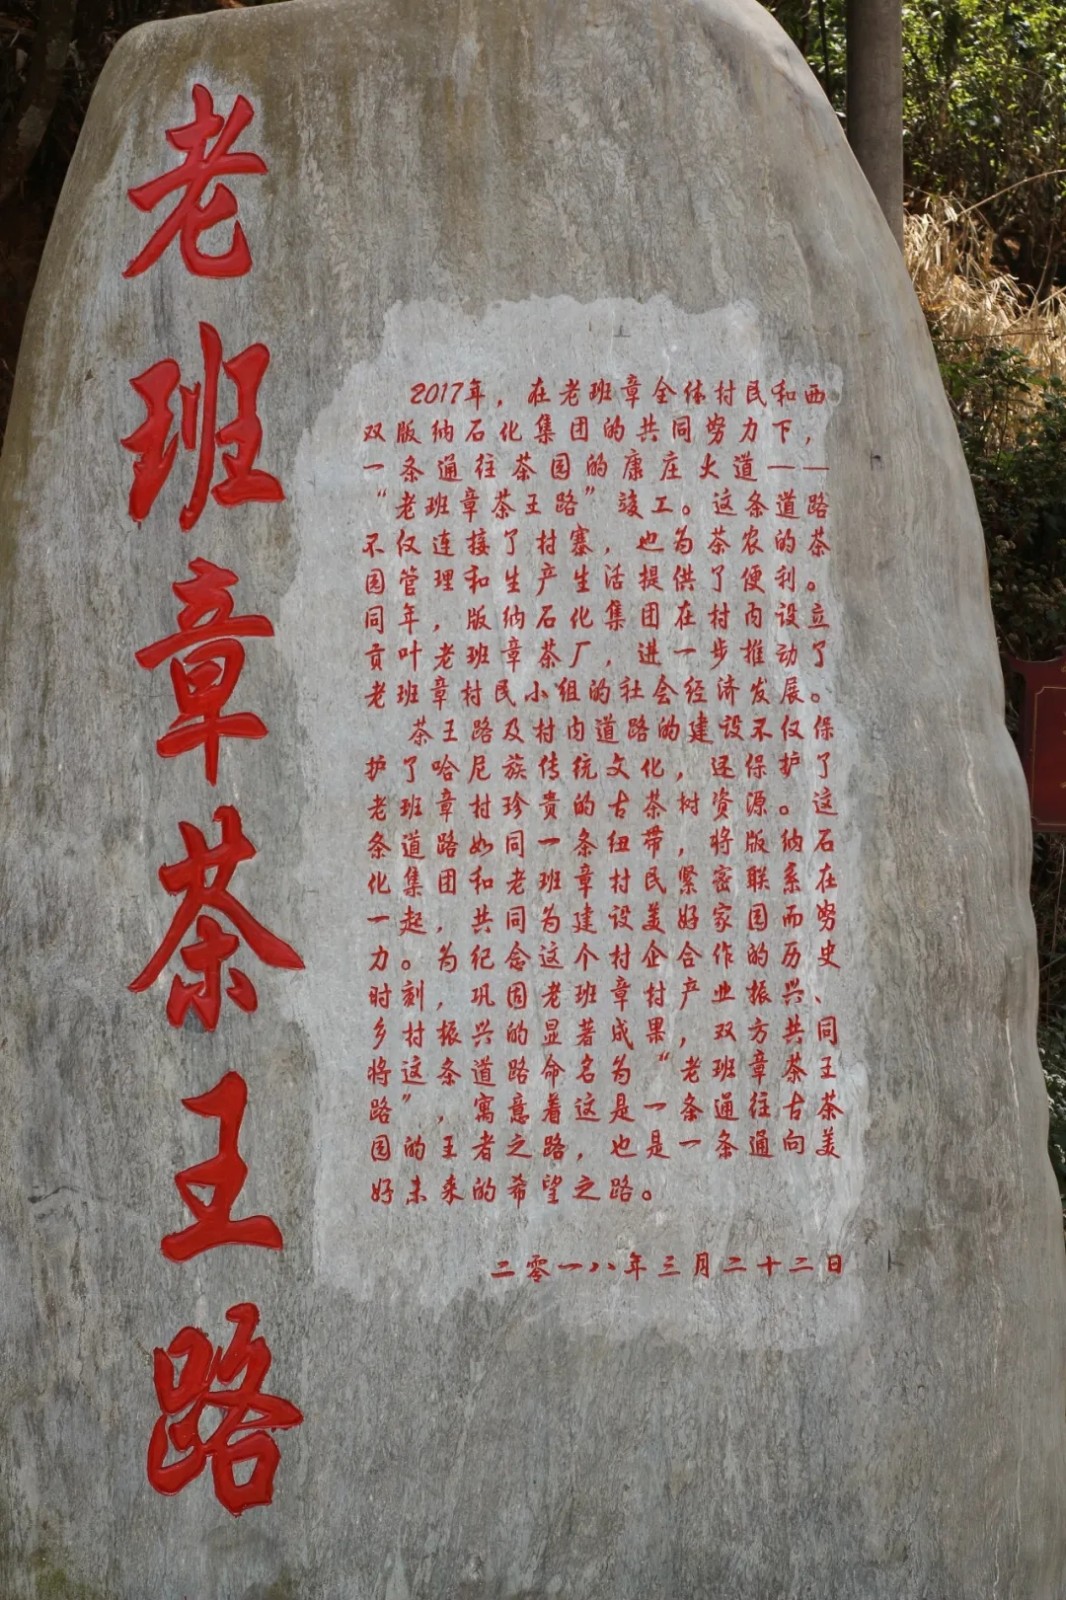 老班章茶王路
2017年，在老班章全体村民和西
双版纳石化集团的共同努力下，
一条通往茶园的康庄大道——
“老班章茶王路”竣工。这条道路
不仅连接了村寨，也为茶农的茶
园管理和生产生活提供了便利。
同年，版纳石化集团在村内设立
贡叶老班章茶厂，进一步推动了
老班章村民小组的社会经济发展。
茶王路及村内道路的建设不仅保
护了哈尼族传统文化，还保护了
老班章村珍贵的古茶树资源。这
条道路如同一条纽带，将版纳石
化集团和老班章村民紧密联系在
一起，共同为建设美好家园而努
力。为纪念这个村企合作的历史
时刻，巩固老班章村产业振兴、
乡村振兴的显著成果，双方共同
将这条道路命名为“老班章茶王
路”，寓意着这是一条通往古茶
园的王者之路，也是一条通向美
好未来的希望之路。
二零一八年三月二十二日